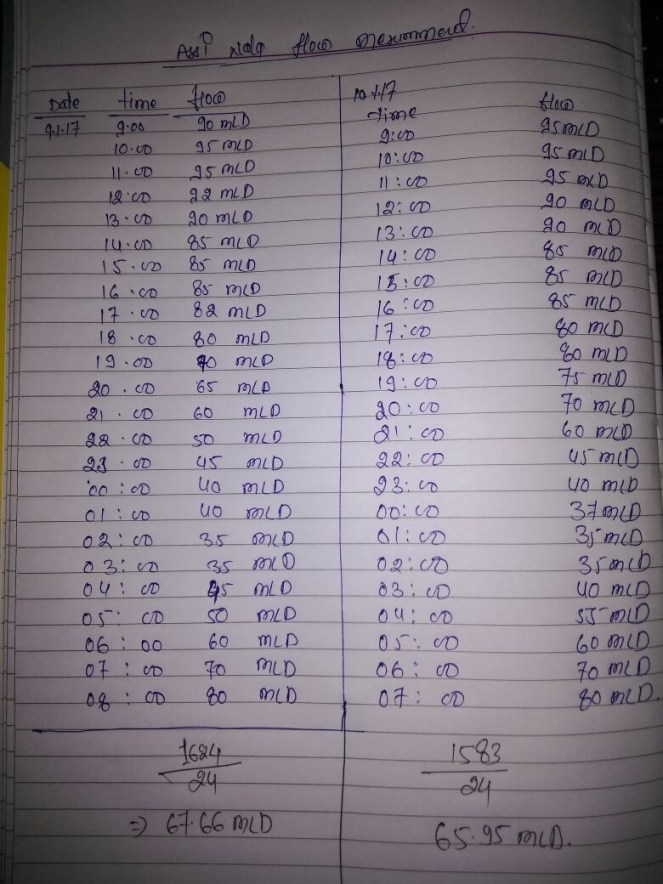 Assi nala flow
Date time flow
9.1.17 9.00 90 MLD
10.00 95 MLD
11.00 95 MLD
12.00 92 MLD
13.00 90 MLD
14.00 85 MLD
15.00 85 MLD
16.00 85 MLD
17.00 82 MLD
18.00 80 MLD
19.00 70 MLD
20.00 65 MLD
21.00 60 MLD
22.00 50 MLD
23.00 45 MLD
00:00 40 MLD
01:00 40 MLD
02:00 35 MLD
03:00 35 MLD
04:00 45 MLD
05:00 50 MLD
06:00 60 MLD
07:00 70 MLD
08:00 80 MLD
1624
24
⇒ 67.66 MLD
10.1.17
Time flow
9:00 95 MLD
10:00 95 MLD
11:00 95 MLD
12:00 90 MLD
13:00 90 MLD
14:00 85 MLD
15:00 85 MLD
16:00 85 MLD
17:00 80 MLD
18:00 80 MLD
19:00 75 MLD
20:00 70 MLD
21:00 60 MLD
22:00 45 MLD
23:00 40 MLD
00:00 37 MLD
01:00 35 MLD
02:00 35 MLD
03:00 40 MLD
04:00 55 MLD
05:00 60 MLD
06:00 70 MLD
07:00 80 MLD.
1583
24
65.95 MLD.